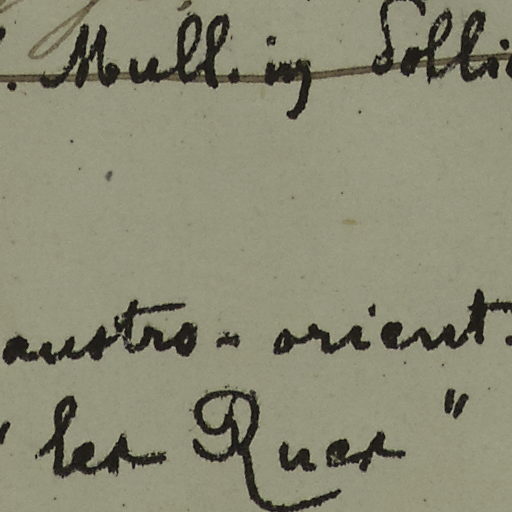 . Mull. in Solli
austro-orient.
" les Ruer "